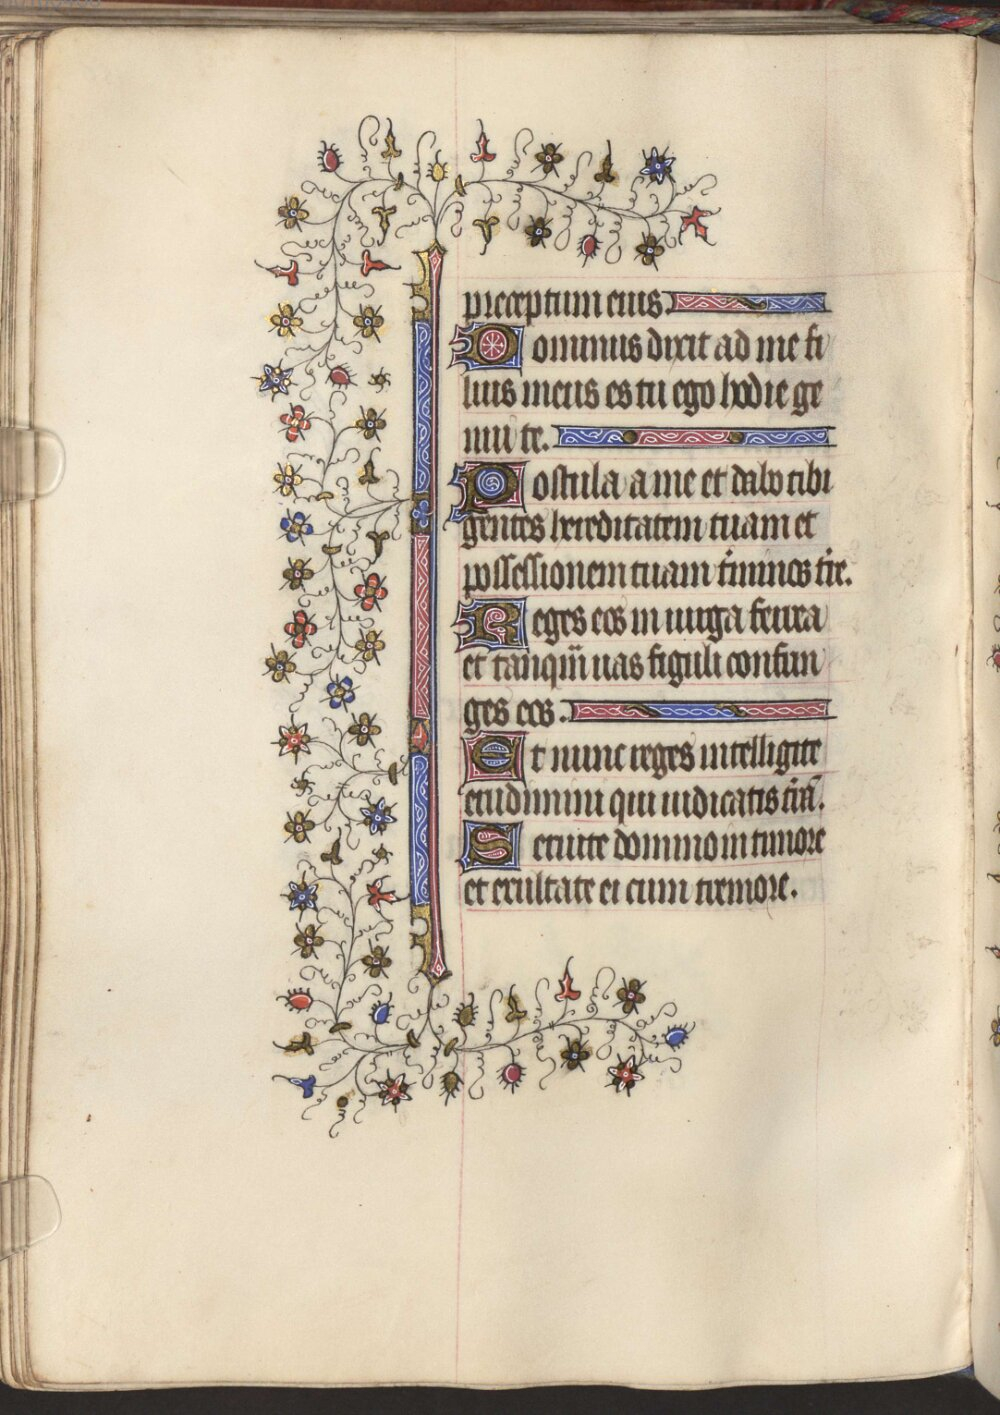 preceptum eius.
Dominus dixit ad me fi
lius meus es tu ego hodie ge
nui te.
Postula a me et dabo tibi
gentes hereditatem tuam et
possessionem tuam t̄minos t̄re.
Reges eos in uirga ferrea
et tanqm̄ uas figuli confrin
ges eos.
Et nunc reges intelligite
erudimini qui iudicatis t̄rā.
Seruite domino in timore
et exultate ei cum tremore.